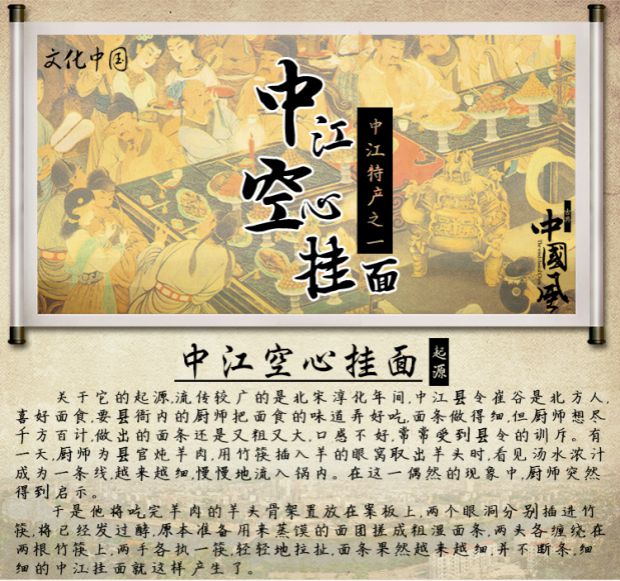 文化中国
中江空心挂面
中江特产之一
古典
中國風
中江空心挂面
起源
关于它的起源,流传较广的是北宋淳化年间,中江县令崔谷是北方人,
喜好面食,要县衙内的厨师把面食的味道弄好吃,面条做得细,但厨师想尽
千方百计,做出的面条还是又粗又大,口感不好,常常受到县令的训斥。有
一天,厨师为县官炖羊肉,用竹筷插入羊的眼窝取出羊头时,看见汤水浓汁
成为一条线,越来越细,慢慢地流入锅内。在这一偶然的现象中,厨师突然
得到启示。
于是他将吃完羊肉的羊头骨架置放在案板上,两个眼洞分别插进竹
筷,将已经发过酵,原本准备用来蒸馍的面团搓成粗湿面条,两头各缠绕在
两根竹筷上,两手各执一筷,轻轻地拉扯,面条果然越来越细,并不断条,细
细的中江挂面就这样产生了。